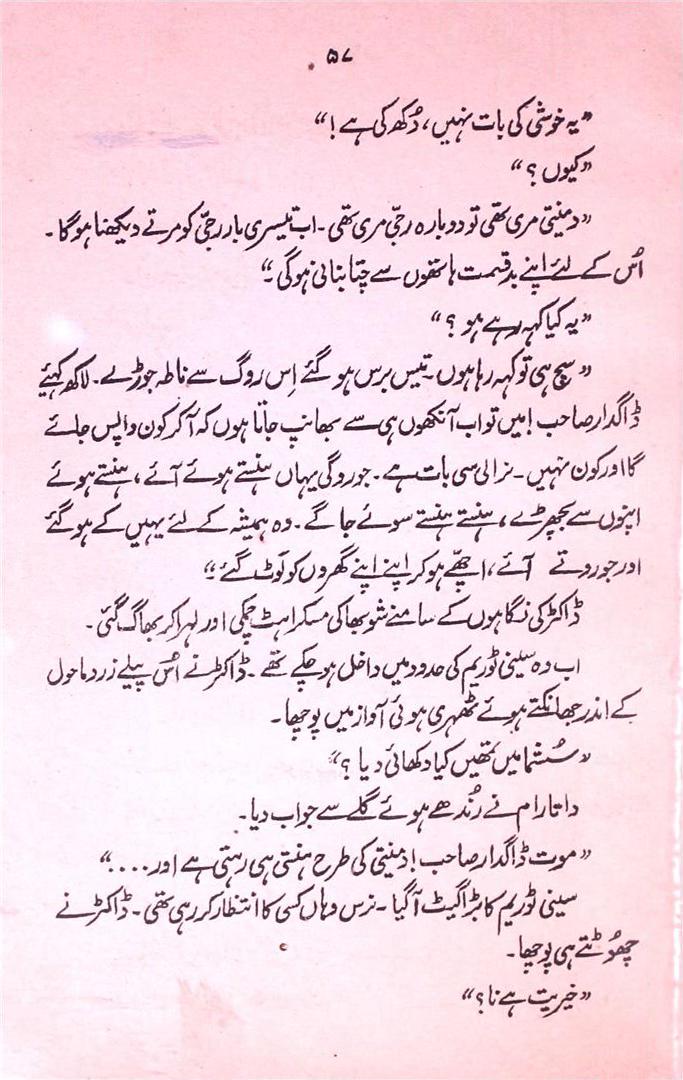 ۵۷
”یہ خوشی کی بات نہیں، دُکھ کی ہے!“
”کیوں؟“
”دمنیتی مری تھی تو دوبارہ رجّی مری تھی۔ اب تیسری بار رجّی کو مرتے دیکھنا ہوگا۔
اُس کے لئے اپنے بدقسمت ہاتھوں سے چتا بنانی ہوگی۔“
”یہ کیا کہہ رہے ہو؟“
”سچ ہی تو کہہ رہا ہوں۔ تیس برس ہو گئے اِس روگ سے ناطہ جوڑے۔ لاکھ کہئیے
ڈاگدار صاحب! میں تو اب آنکھوں ہی سے بھانپ جاتا ہوں کہ آ کر کون واپس جائے
گا اور کون نہیں۔ نرالی سی بات ہے۔ جو روگی یہاں ہنستے ہوئے آئے، ہنستے ہوئے
اپنوں سے بچھڑے، ہنستے ہنستے سوئے جاگے۔ وہ ہمیشہ کے لئے یہیں کے ہو گئے
اور جو روتے آئے، اچھّے ہو کر اپنے اپنے گھروں کو لَوٹ گئے۔“
ڈاکٹر کی نگاہوں کے سامنے شوبھا کی مسکراہٹ چمکی اور لہرا کر بھاگ گئی۔
اب وہ سینی ٹوریم کی حدود میں داخل ہو چکے تھے۔ ڈاکٹر نے اُس پیلے زرد ماحول
کے اندر جھانکتے ہوئے ٹھہری ہوئی آواز میں پوچھا۔
”سُشما میں تمھیں کیا دکھائی دیا؟“
داتا رام نے رُندھے ہوئے گلے سے جواب دیا۔
”موت ڈاگدار صاحب! دمنیتی کی طرح ہنستی ہی رہتی ہے اور....“
سینی ٹوریم کا بڑا گیٹ آ گیا۔ نرس وہاں کسی کا انتظار کر رہی تھی۔ ڈاکٹر نے
چھُوٹتے ہی پوچھا۔
”خیریت ہے نا؟“